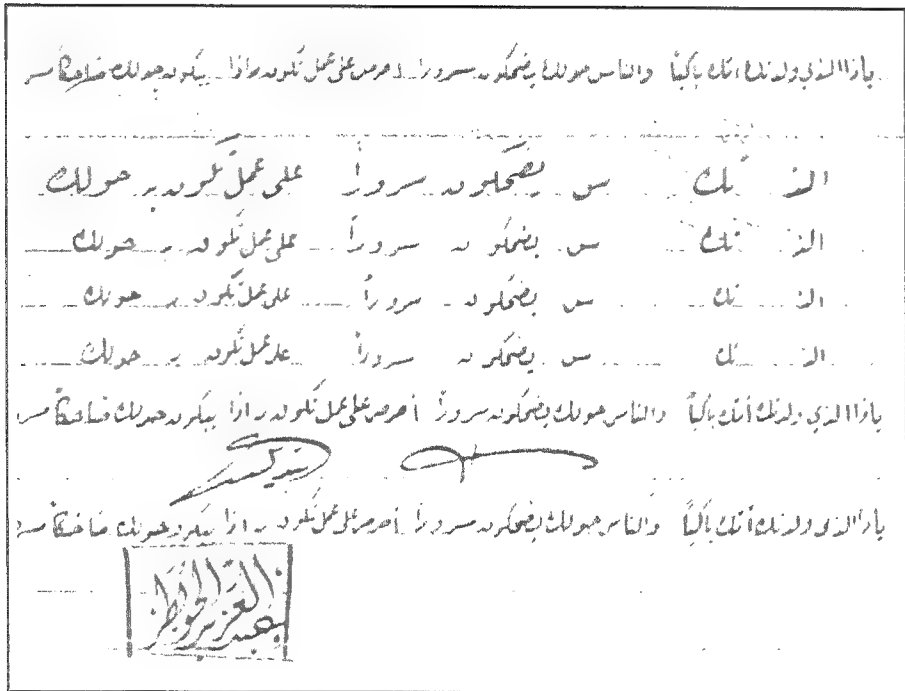 ياذا الذي ولدتك أمك باكياً والناس حولك يضحكون سروراً احرص على عمل تكون اذا يبكون حولك ضاحكاً مسر
الذ تك س يضحكون سروراً على عمل تكون بر حولك
الذ تك س يضحكون سروراً على عمل تكون بر حولك
الذ تك س يضحكون سروراً على عمل تكون بر حولك
الذ تك س يضحكون سروراً على عمل تكون بر حولك
ياذا الذي ولدتك أمك باكياً والناس حولك يضحكون سروراً أحرص على عمل تكون اذا يبكون حولك ضاحكاً مسر
ياذا الذي ولدتك أمك باكياً والناس حولك يضحكون سروراً أحرص على عمل تكون اذا يبكون حولك ضاحكاً مسر
عبد العزيز